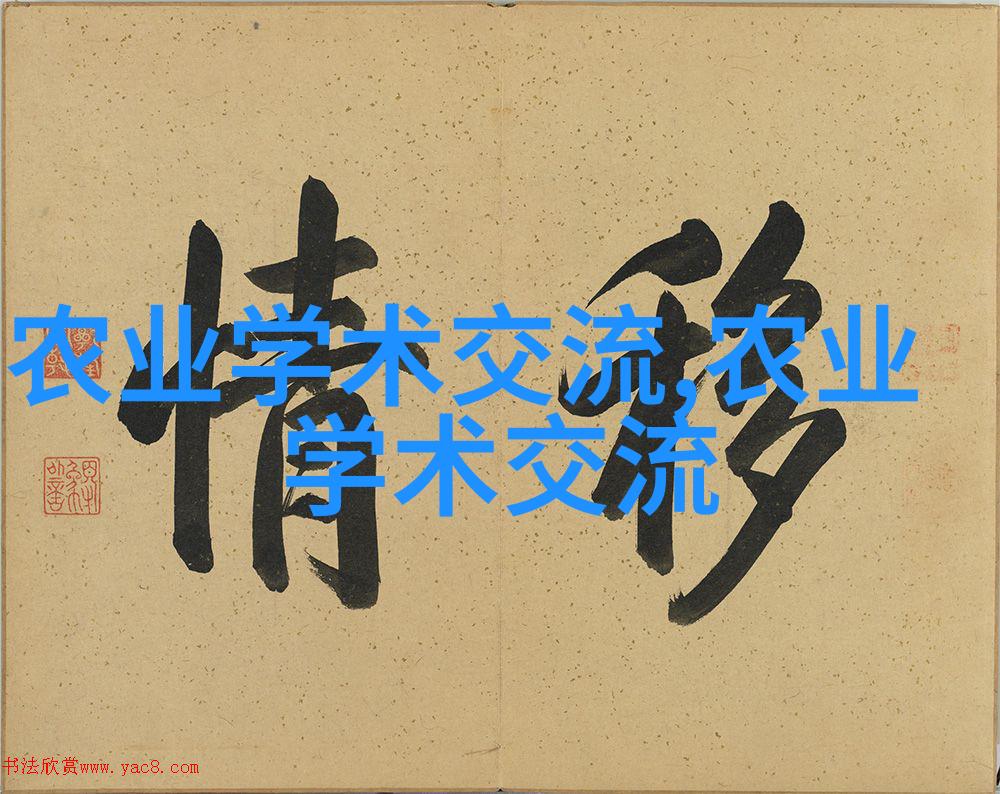 移情
农业学术交流,农业
学术交流
书法欣赏www.yac8.com